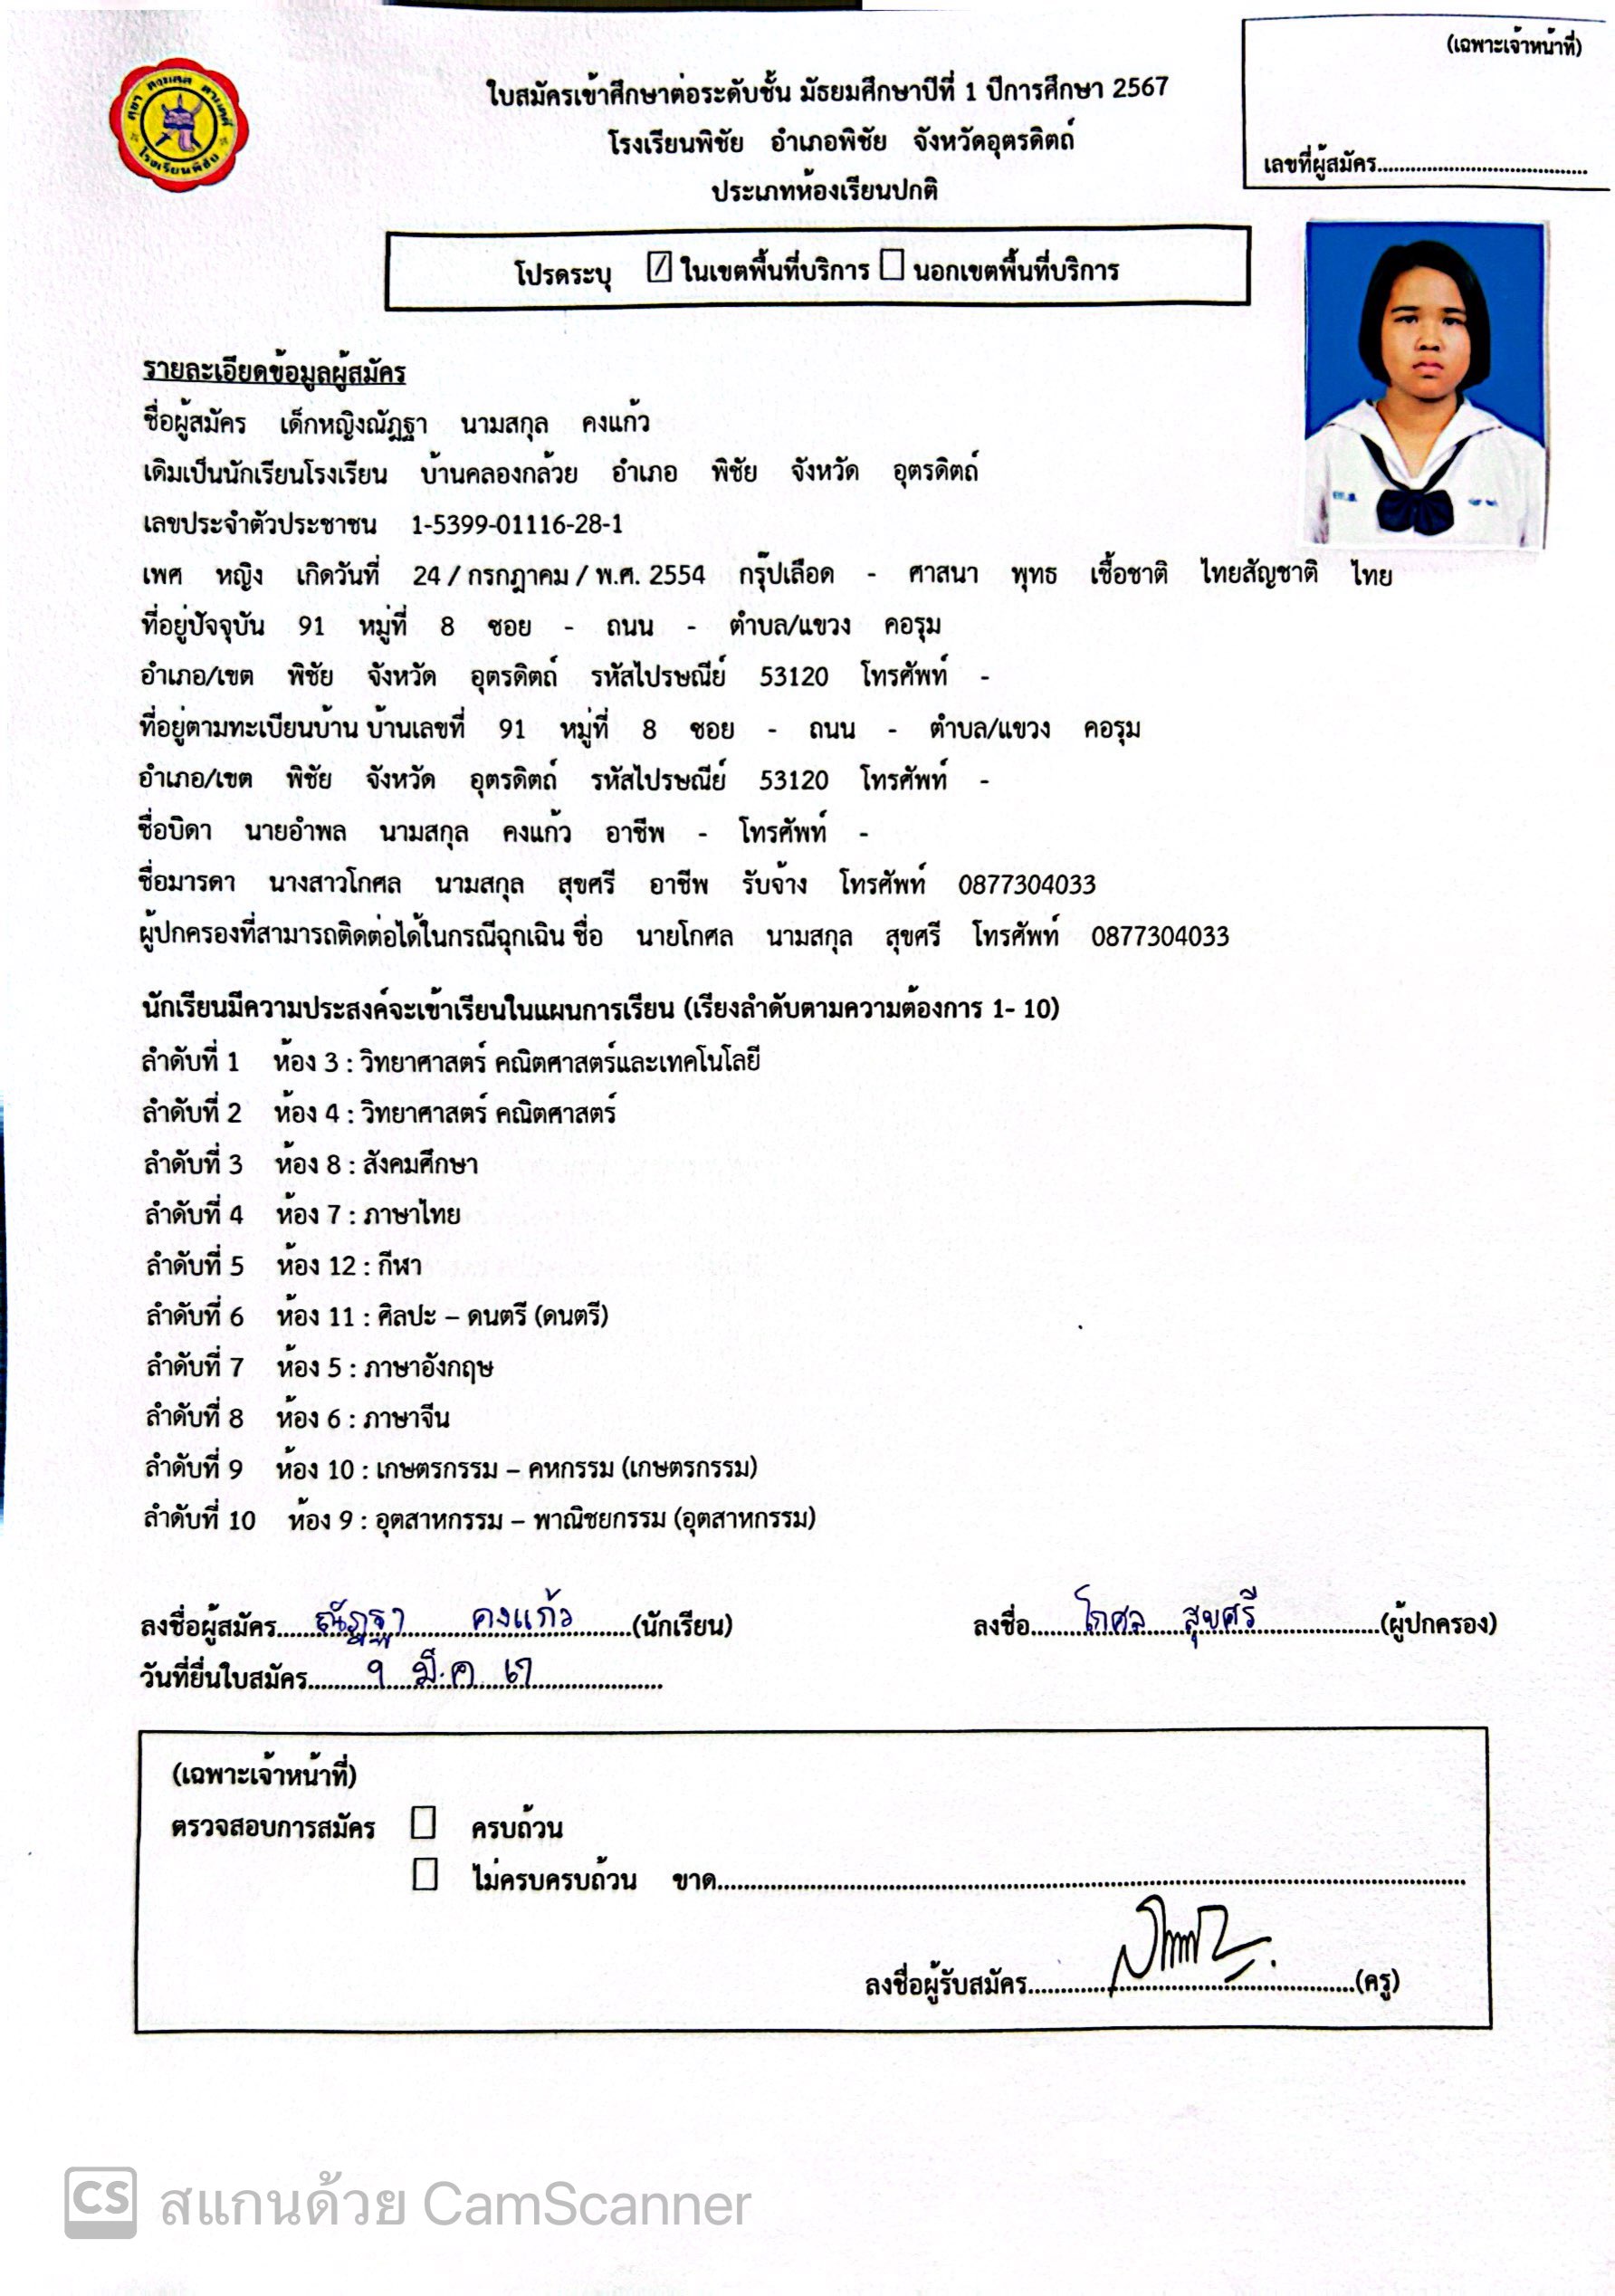 (เฉพาะเจ้าหน้าที่)
เลขที่ผู้สมัคร
โรงเรียนพิชัย
ใบสมัครเข้าศึกษาต่อระดับชั้น มัธยมศึกษาปีที่ 1 ปีการศึกษา 2567
โรงเรียนพิชัย อำเภอพิชัย จังหวัดอุตรดิตถ์
ประเภทห้องเรียนปกติ
โปรดระบุ ☑ ในเขตพื้นที่บริการ ☐ นอกเขตพื้นที่บริการ
รายละเอียดข้อมูลผู้สมัคร
ชื่อผู้สมัคร เด็กหญิงณัฏฐา นามสกุล คงแก้ว
เดิมเป็นนักเรียนโรงเรียน บ้านคลองกล้วย อำเภอ พิชัย จังหวัด อุตรดิตถ์
เลขประจำตัวประชาชน 1-5399-01116-28-1
เพศ หญิง เกิดวันที่ 24 / กรกฎาคม / พ.ศ. 2554 กรุ๊ปเลือด - ศาสนา พุทธ เชื้อชาติ ไทยสัญชาติ ไทย
ที่อยู่ปัจจุบัน 91 หมู่ที่ 8 ซอย - ถนน - ตำบล/แขวง คอรุม
อำเภอ/เขต พิชัย จังหวัด อุตรดิตถ์ รหัสไปรษณีย์ 53120 โทรศัพท์ -
ที่อยู่ตามทะเบียนบ้าน บ้านเลขที่ 91 หมู่ที่ 8 ซอย - ถนน - ตำบล/แขวง คอรุม
อำเภอ/เขต พิชัย จังหวัด อุตรดิตถ์ รหัสไปรษณีย์ 53120 โทรศัพท์ -
ชื่อบิดา นายอำพล นามสกุล คงแก้ว อาชีพ - โทรศัพท์ -
ชื่อมารดา นางสาวโกศล นามสกุล สุขศรี อาชีพ รับจ้าง โทรศัพท์ 0877304033
ผู้ปกครองที่สามารถติดต่อได้ในกรณีฉุกเฉิน ชื่อ นายโกศล นามสกุล สุขศรี โทรศัพท์ 0877304033
นักเรียนมีความประสงค์จะเข้าเรียนในแผนการเรียน (เรียงลำดับตามความต้องการ 1- 10)
ลำดับที่ 1 ห้อง 3 : วิทยาศาสตร์ คณิตศาสตร์และเทคโนโลยี
ลำดับที่ 2 ห้อง 4 : วิทยาศาสตร์ คณิตศาสตร์
ลำดับที่ 3 ห้อง 8 : สังคมศึกษา
ลำดับที่ 4 ห้อง 7 : ภาษาไทย
ลำดับที่ 5 ห้อง 12 : กีฬา
ลำดับที่ 6 ห้อง 11 : ศิลปะ – ดนตรี (ดนตรี)
ลำดับที่ 7 ห้อง 5 : ภาษาอังกฤษ
ลำดับที่ 8 ห้อง 6 : ภาษาจีน
ลำดับที่ 9 ห้อง 10 : เกษตรกรรม – คหกรรม (เกษตรกรรม)
ลำดับที่ 10 ห้อง 9 : อุตสาหกรรม – พาณิชยกรรม (อุตสาหกรรม)
ลงชื่อผู้สมัคร ณัฏฐา คงแก้ว (นักเรียน) ลงชื่อ โกศล สุขศรี (ผู้ปกครอง)
วันที่ยื่นใบสมัคร ๆ มี.ค ๖๗
(เฉพาะเจ้าหน้าที่)
ตรวจสอบการสมัคร ☐ ครบถ้วน
☐ ไม่ครบครบถ้วน ขาด
ลงชื่อผู้รับสมัคร (ครู)
CS สแกนด้วย CamScanner